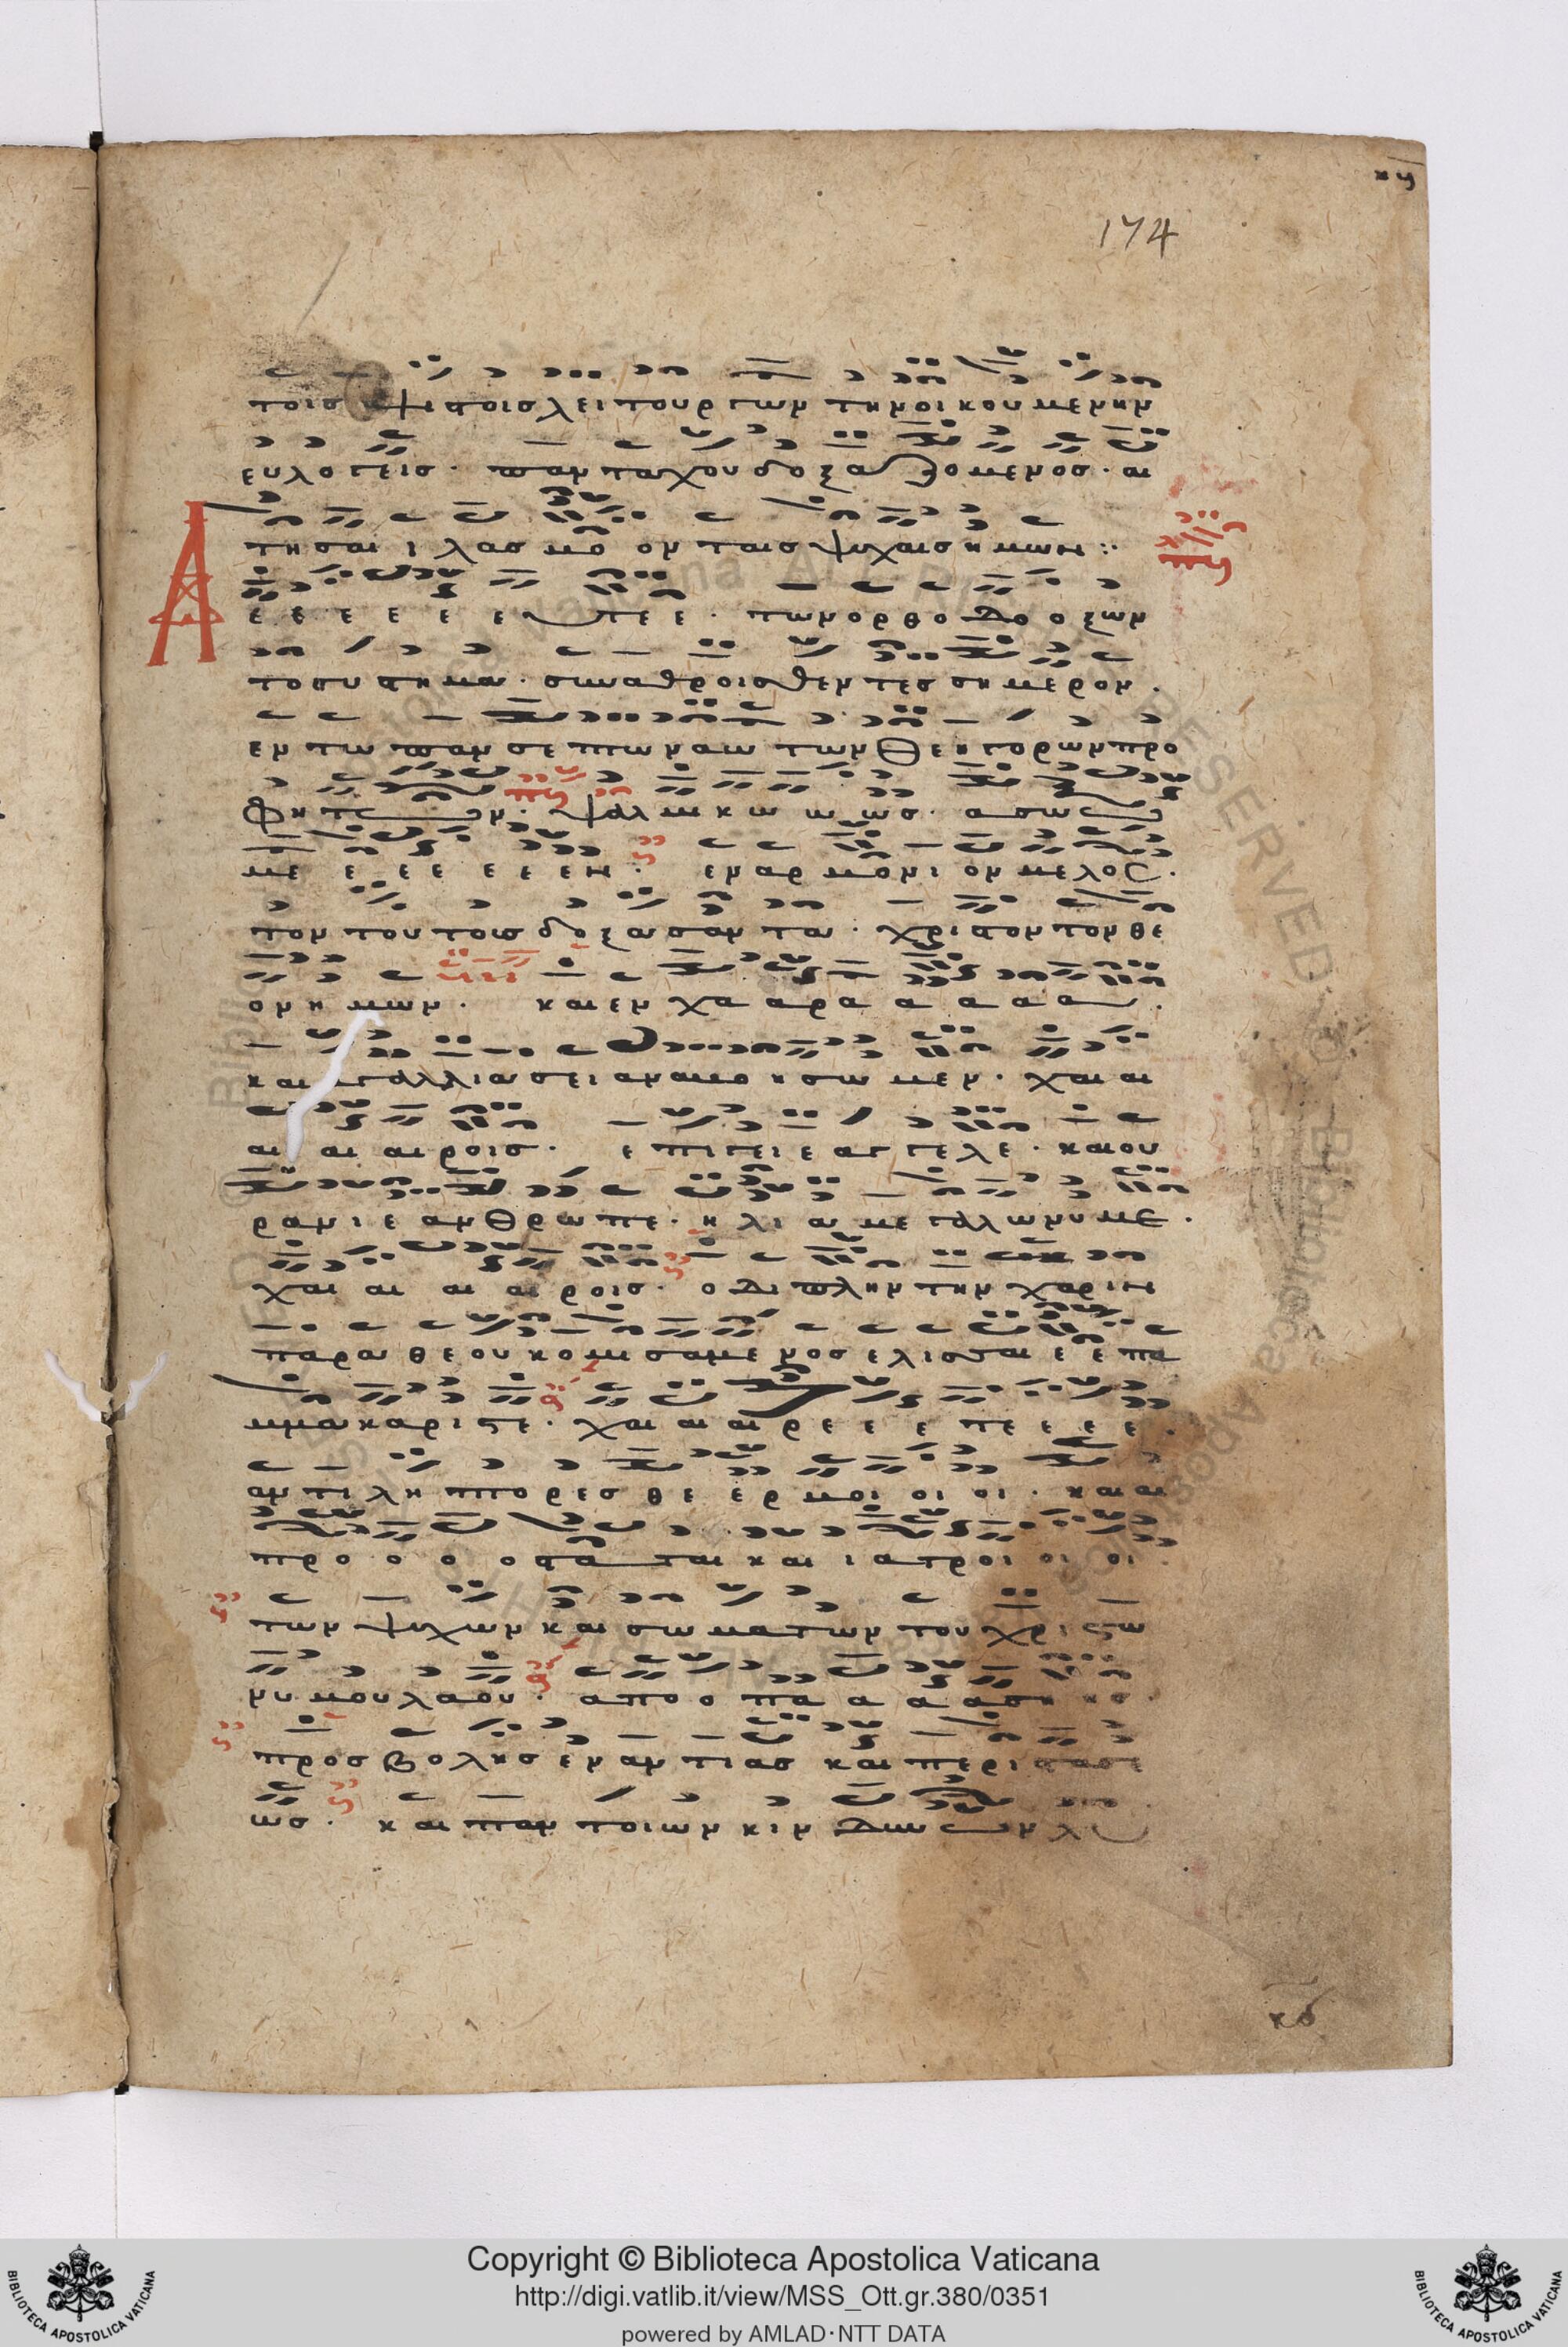 κγ
174
τοις υψιστοις λειτουργων την οικουμενην
ευλογεις · πανταχου δοξαζομενος · αι
τησαι ιλασμο ον ταις ψυχαις ημων :·
Α ε ε ε ε ε ε υτε ε · των ορθοδο οξων
το συστημα · συναθροισθεντες σημερον ·
εν τω πανσεπτω ναω των θεηγορων προ
φητων · ψαλμικω ω ως · ασω
με ε ε ε ε ε εν · εναρμονιον μελος ·
τον τουτους δοξασαντα · χριστον τον θε
ον ημων · και εν χα α ρα α α α α ·
και αγαλλιασει αναβοησωμεν · χαι αι
αι αι αι ροις · επιγειε αγγελε · και ου
ρανιε ανθρωπε · ηλια μεγαλωνυμε ·
χαι αι αι αι ροις · ο διπλην την χαριν
παρα θεου κομισαμενος ελισσαι ε ε πα
μμακαριστε · χαι αι αι ρε ε ε τε ε ε ε ·
αντιληπτορες θε ερμοι οι οι · και αι
προ ο ο οστα ται και ιατροι οι οι ·
των ψυχων και σωματων του χριστω
νυμου λαου · απο ο πα α α ασης
προσβολης εναντιας και περιστασε
ως · και παντοιων κινδυνων
κδ
Copyright © Biblioteca Apostolica Vaticana
http://digi.vatlib.it/view/MSS_Ott.gr.380/0351
powered by AMLAD·NTT DATA
BIBLIOTECA APOSTOLICA VATICANA
BIBLIOTECA APOSTOLICA VATICANA